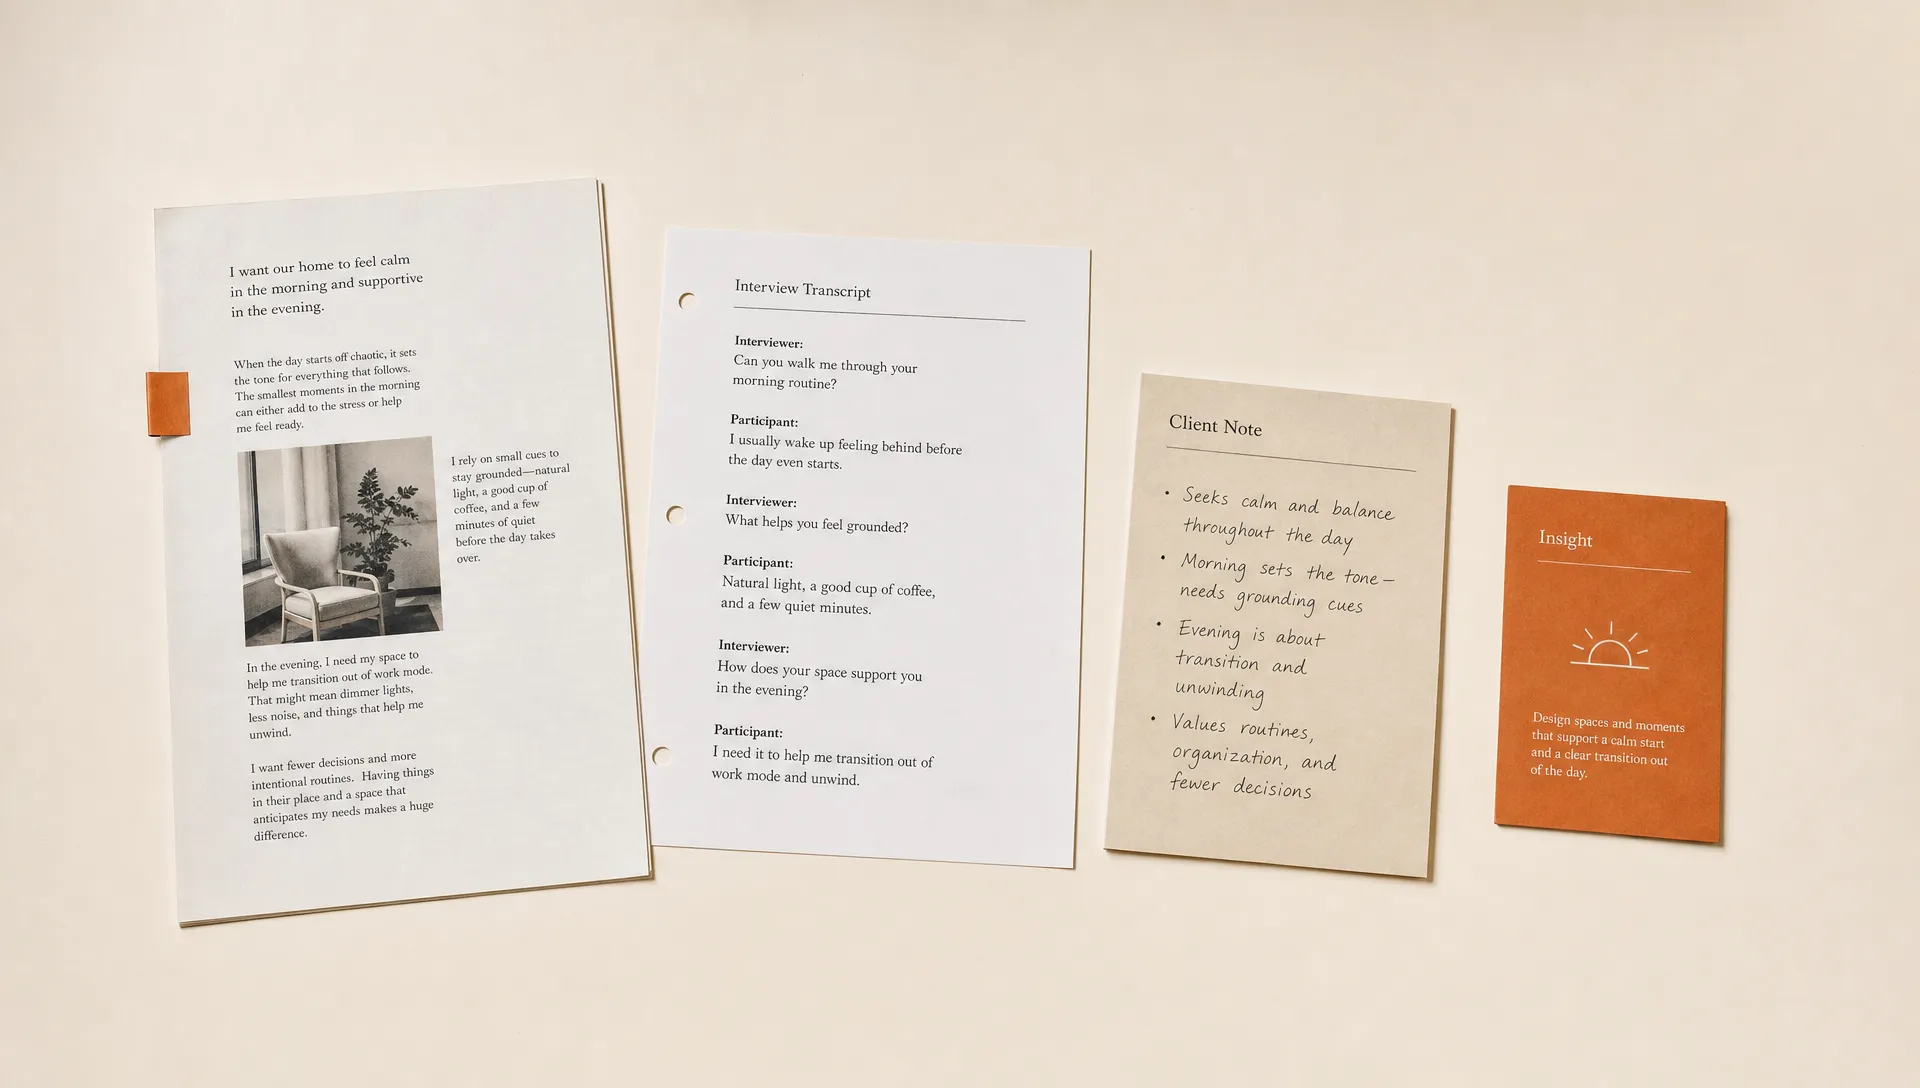 I want our home to feel calm
in the morning and supportive
in the evening.
When the day starts off chaotic, it sets
the tone for everything that follows.
The smallest moments in the morning
can either add to the stress or help
me feel ready.
I rely on small cues to
stay grounded—natural
light, a good cup of
coffee, and a few
minutes of quiet
before the day takes
over.
In the evening, I need my space to
help me transition out of work mode.
That might mean dimmer lights,
less noise, and things that help me
unwind.
I want fewer decisions and more
intentional routines. Having things
in their place and a space that
anticipates my needs makes a huge
difference.
Interview Transcript
Interviewer:
Can you walk me through your
morning routine?
Participant:
I usually wake up feeling behind before
the day even starts.
Interviewer:
What helps you feel grounded?
Participant:
Natural light, a good cup of coffee,
and a few quiet minutes.
Interviewer:
How does your space support you
in the evening?
Participant:
I need it to help me transition out of
work mode and unwind.
Client Note
• Seeks calm and balance
throughout the day
• Morning sets the tone—
needs grounding cues
• Evening is about
transition and
unwinding
• Values routines,
organization, and
fewer decisions
Insight
Design spaces and moments
that support a calm start
and a clear transition out
of the day.